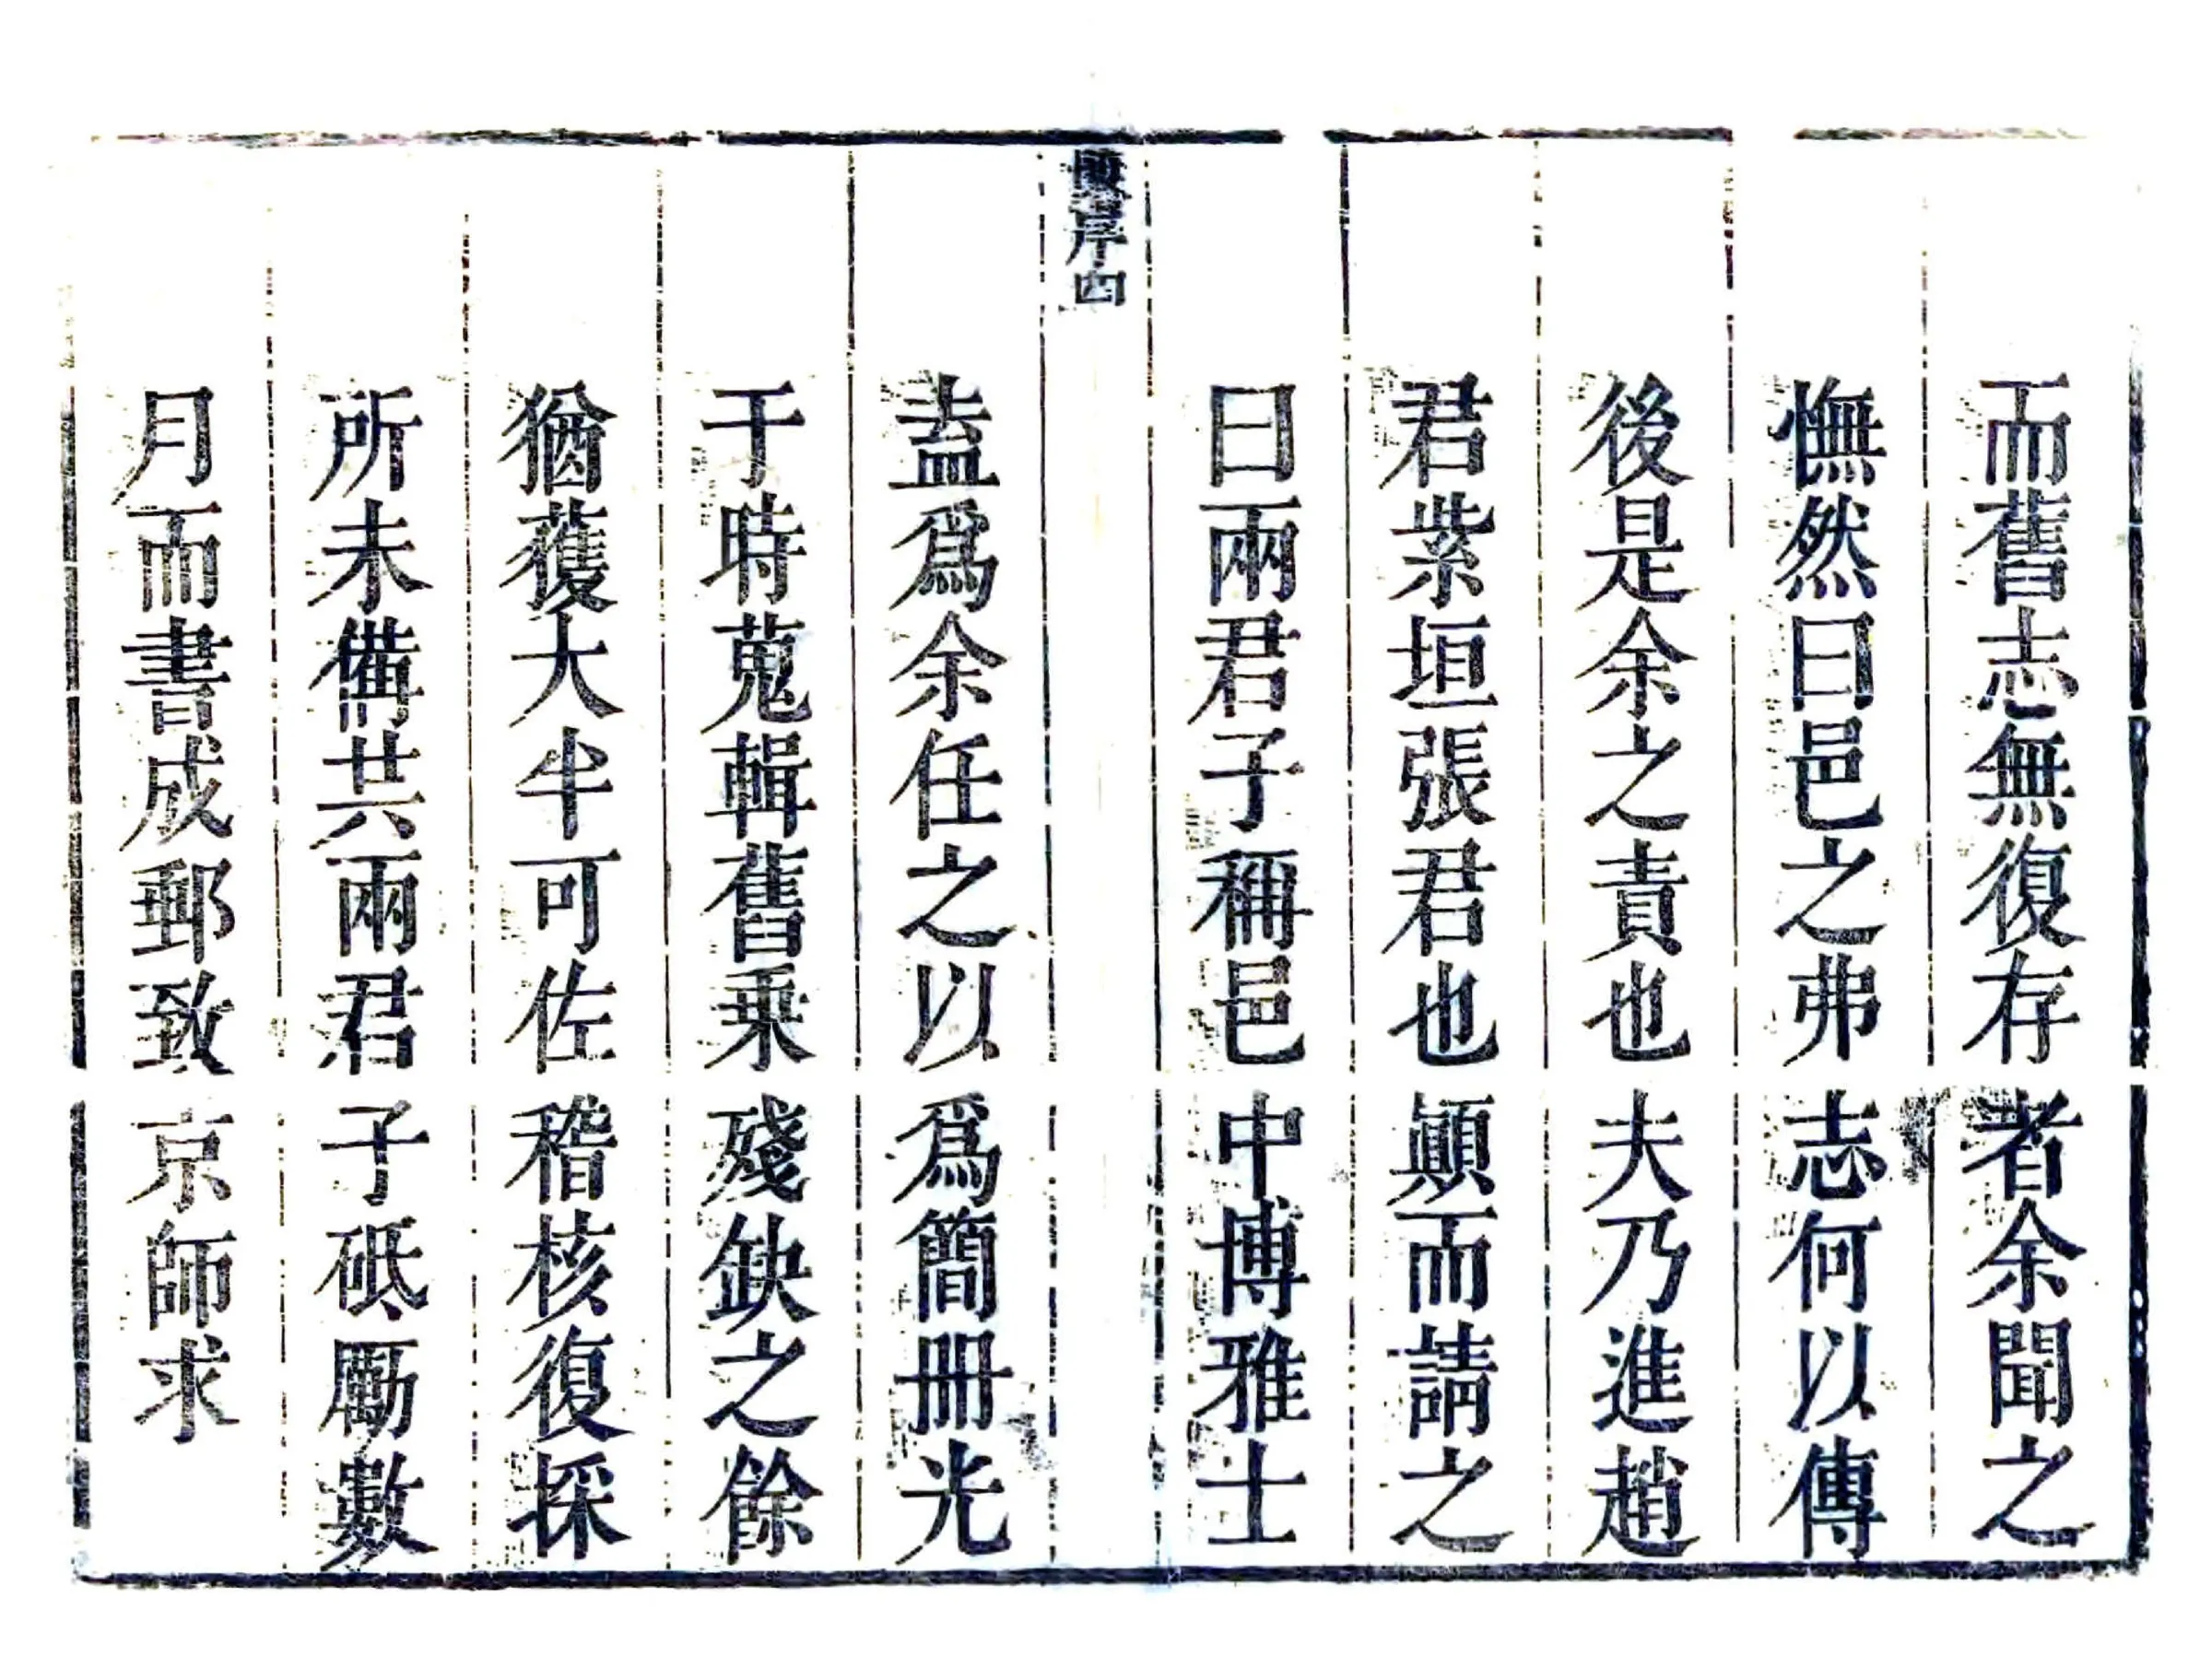 而舊志無復存者余聞之
憮然曰邑之弗志何以傳
後是余之責也夫乃進趙
君紫垣張君也顛而請之
曰兩君子稱邑中博雅士
序四
盍爲余任之以爲簡冊光
于時蒐輯舊乗殘缺之餘
猶獲大半可佐稽核復採
所未備共兩君子砥勵數
月而書成郵致京師求